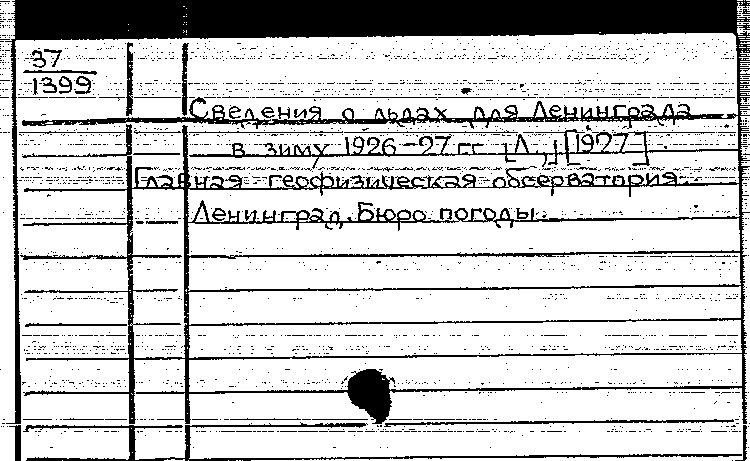 37
1399
Сведения о льдах для Ленинграда
в зиму 1926-27 гг [Л.,] [1927]
Главная геофизическая обсерватория.
Ленинград. Бюро погоды.